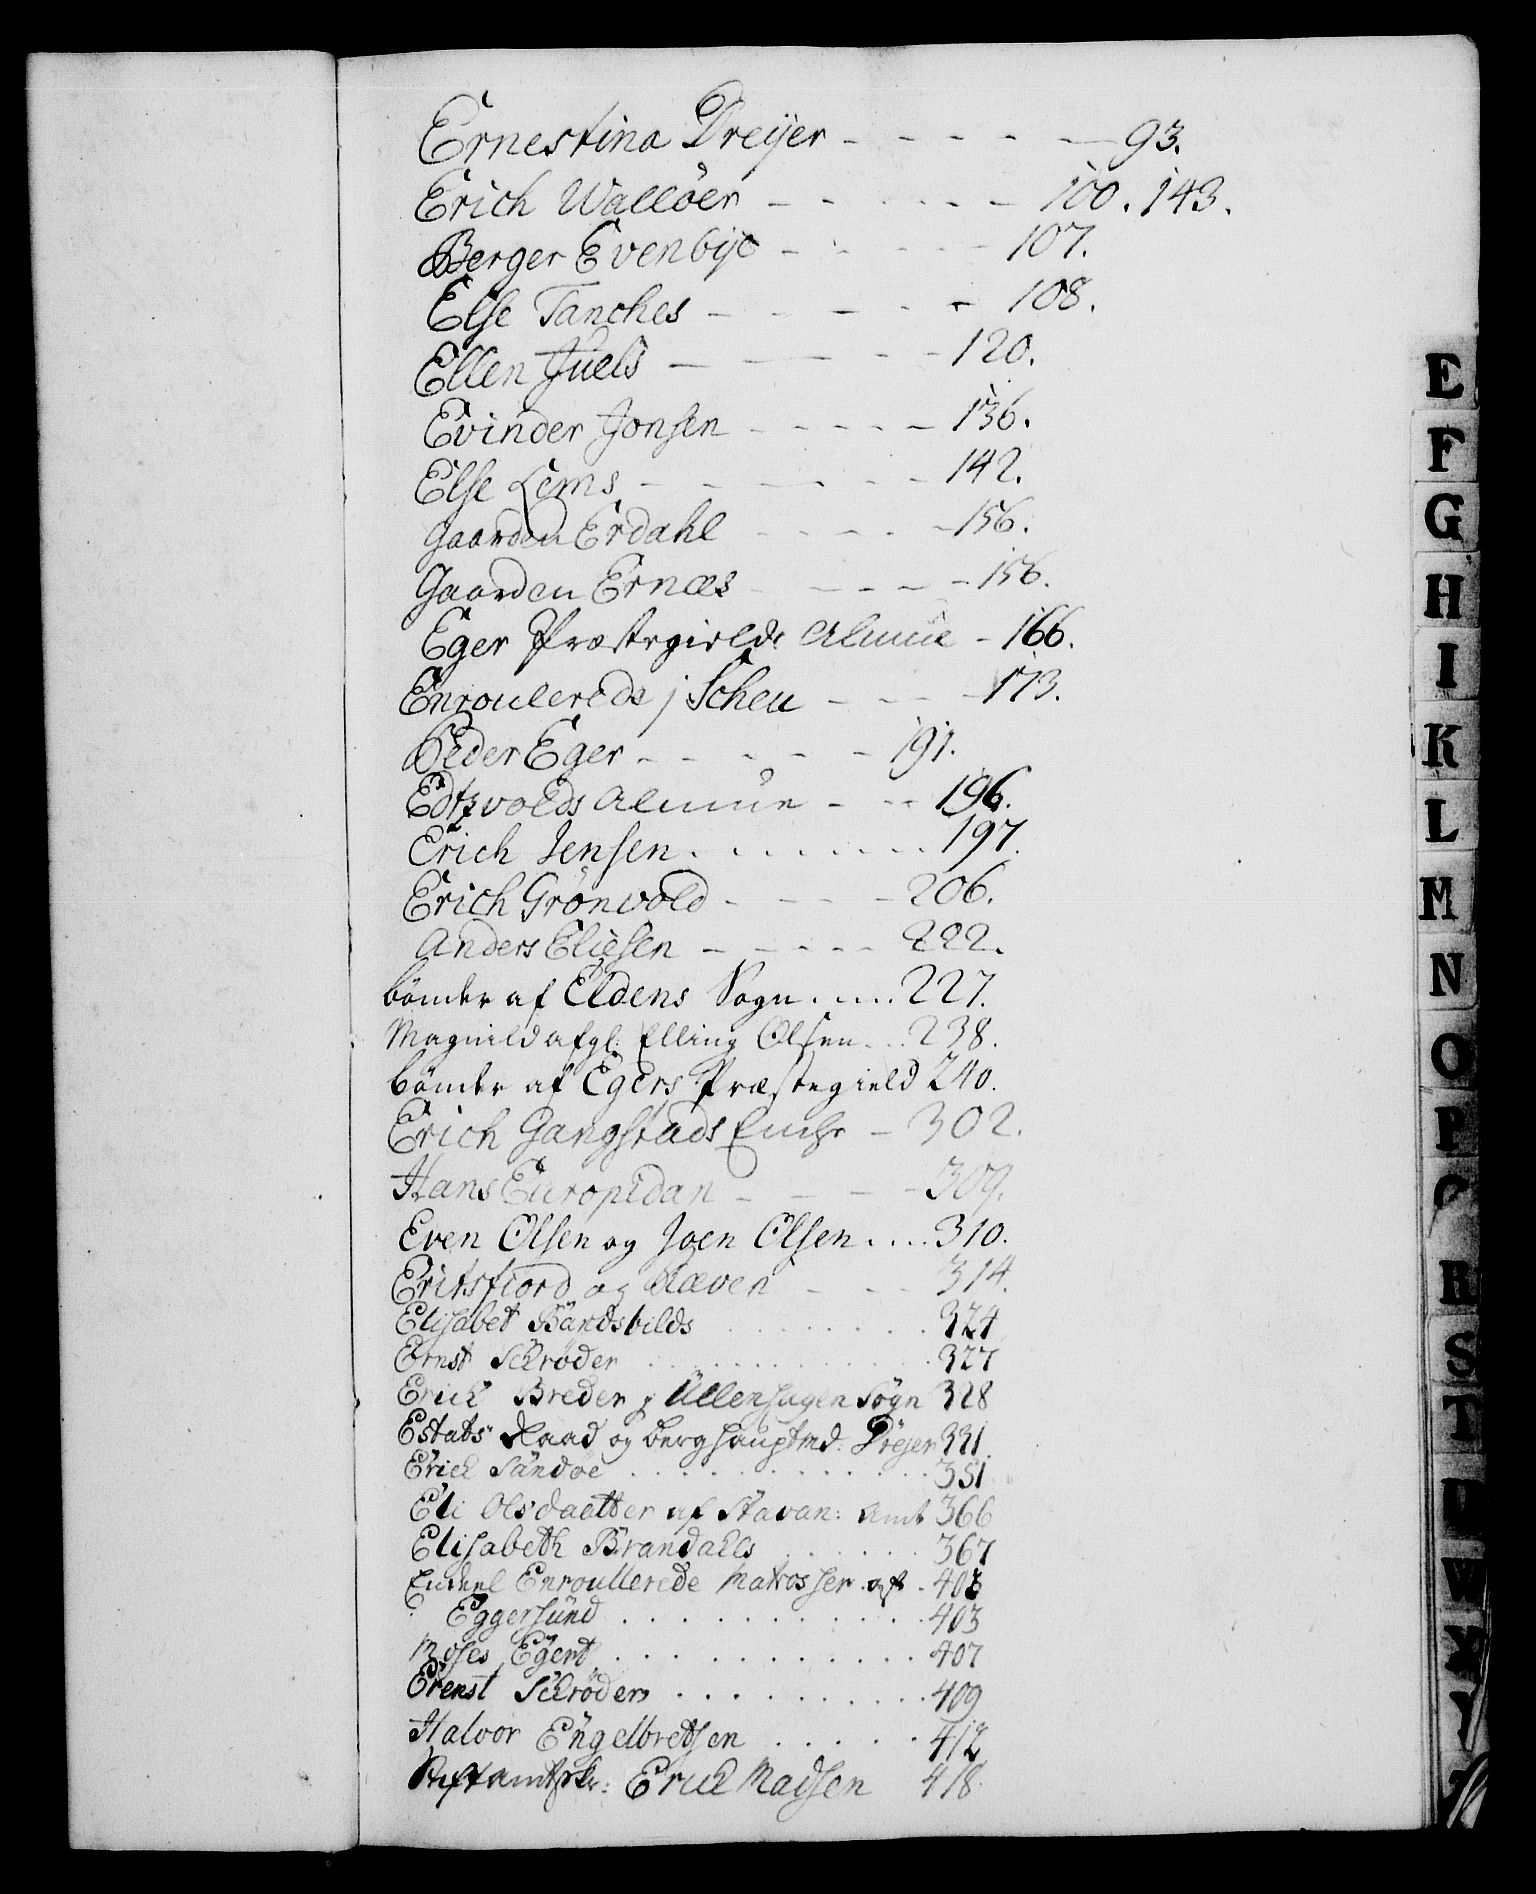 Ernestina Dreÿer - - - - - 93.
Erich Walløer - - - - - - 100. 143.
Berger Evenbÿe - - - - 107.
Else Tanches - - - - - 108.
Ellen Juels - - - - 120.
Evinder Jonsen - - - - - 136.
Else Lems - - - - - 142.
Gaarden Erdahl - - - - - 156.
Gaarden Ernæs - - - - - 156.
Eger Præstegields Almue - 166.
Enroulerede j Scheu - - - - 173.
Peder Eger - - - - - 191.
Edtzvolds Almue - - - 196.
Erich Jensen . . . . . . . . 197.
Erich Grönvold - - - - 206.
Anders Eliesen - - - - - 222.
bönder af Eldens Sogn . . . . 227.
Magnild afgl: Elling Olsen . . . 238.
bönder af Egers Præstegield 240.
Erich Gangstads Enche - 302.
Hans Europidan - - - - 309.
Even Olsen og Joen Olsen . . . . 310.
Eritsfiord og - - - 314.
Elisabet Bandsbilds . . . . . . . . 324
Ernst Schrøder . . . . . . . . . . 327
Erich Breder j Ullensagen Sogn 328
Estats Raad og berghauptmd: Drejer 331
Erich Sandøe . . . . . . . . . 351
Eli Olsdaatter af Stavan: Amt 366
Elisabeth Brandahls . . . . . . 367
Enroullerede Matrosser af - 403
Eggersund . . . . . . . . . . 403
Moses Egert . . . . . . . . . . 407
Erenst Schrøder . . . . . . . . 409
Halvor Engelbretsen . . . . . 412
Stiftamtskr: Erich Madsen 418.
E
F
G
H
I
K
L
M
N
O
P
Q
R
S
T
U
W
X
Y